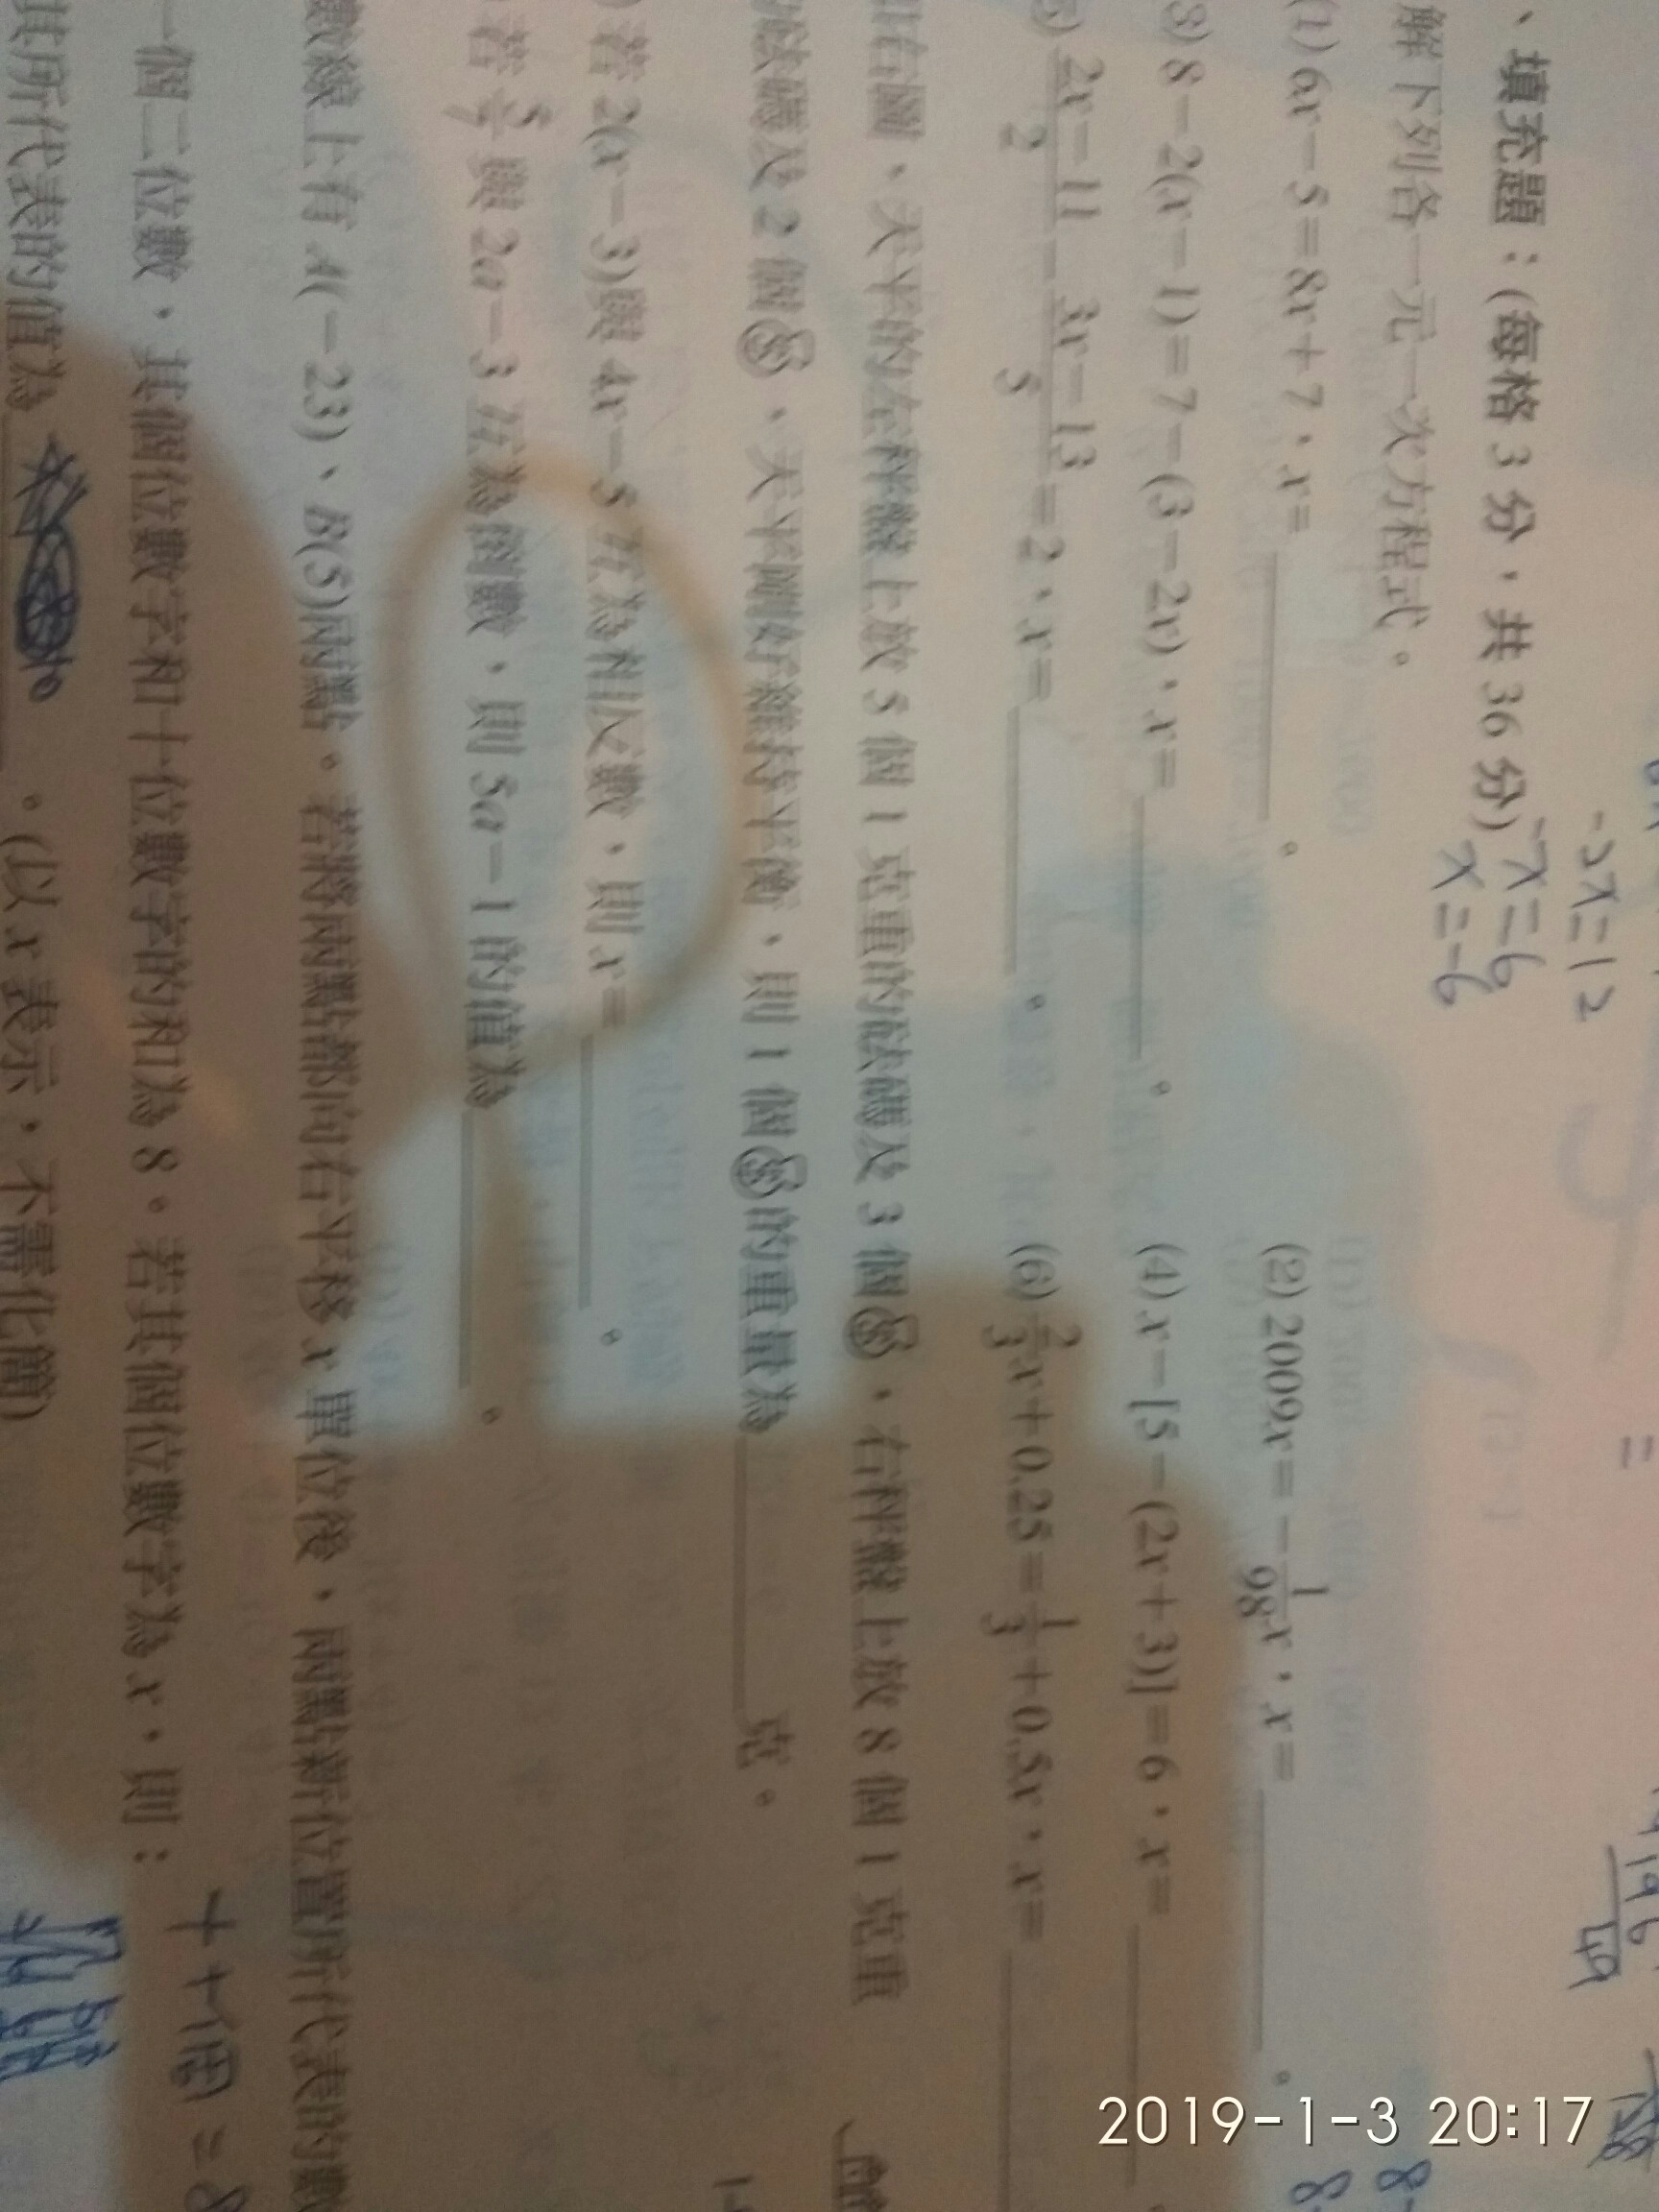 -2x=12
-x=6
x=-6
、填充題：(每格 3 分，共 36 分)
解下列各一元一次方程式。
(1) 6x－5＝8x＋7，x＝________。
(2) 2009x＝－1/98 x，x＝________。
3) 8－2(x－1)＝7－(3－2x)，x＝________。
(4) x－[5－(2x＋3)]＝6，x＝________。
5) (2x－11)/2－(3x－13)/5＝2，x＝________。
(6) 2/3 x＋0.25＝1/3＋0.5x，x＝________
右圖，天平的左秤盤上放 5 個 1 克重的砝碼及 3 個，右秤盤上放 8 個 1 克重
砝碼及 2 個，天平剛好維持平衡，則 1 個的重量為________克。
) 若 2(x－3)與 4x－5 互為相反數，則 x＝________。
若 5/7 與 2a－3 互為倒數，則 5a－1 的值為________。
數線上有 A(－23)、B(5)兩點。若將兩點都向右平移 x 單位後，兩點新位置所代表的數
一個二位數，其個位數字和十位數字的和為 8。若其個位數字為 x，則：
十+個=8
其所代表的值為________。(以 x 表示，不需化簡)
2019-1-3 20:17